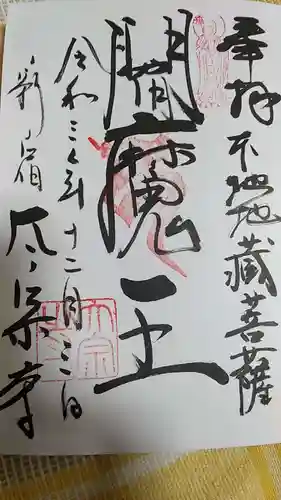 奉拝
地蔵菩薩
閻魔王
令和三年十二月三日
新宿
太宗寺